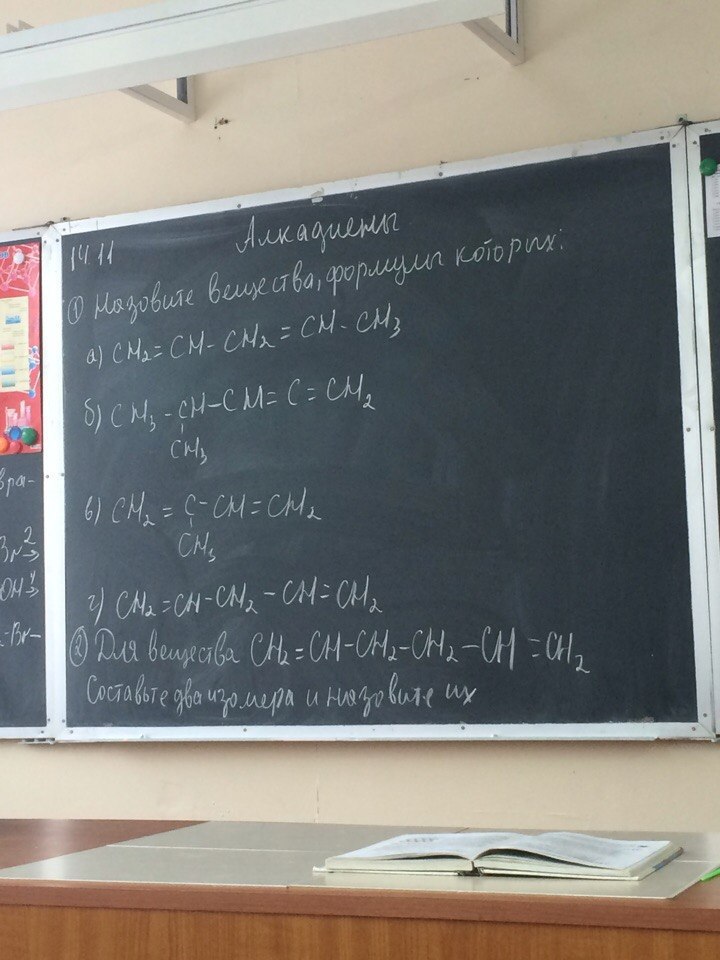 вра-
Br₂→
OH→
-Br-
14.11
Алкадиены
① Назовите вещества, формулы которых:
а) CH₂=CH-CH₂=CH-CH₃
б) CH₃-CH-CH=C=CH₂
CH₃
в) CH₂=C-CH=CH₂
CH₃
г) CH₂=CH-CH₂-CH=CH₂
② Для вещества CH₂=CH-CH₂-CH₂-CH=CH₂
Составьте два изомера и назовите их